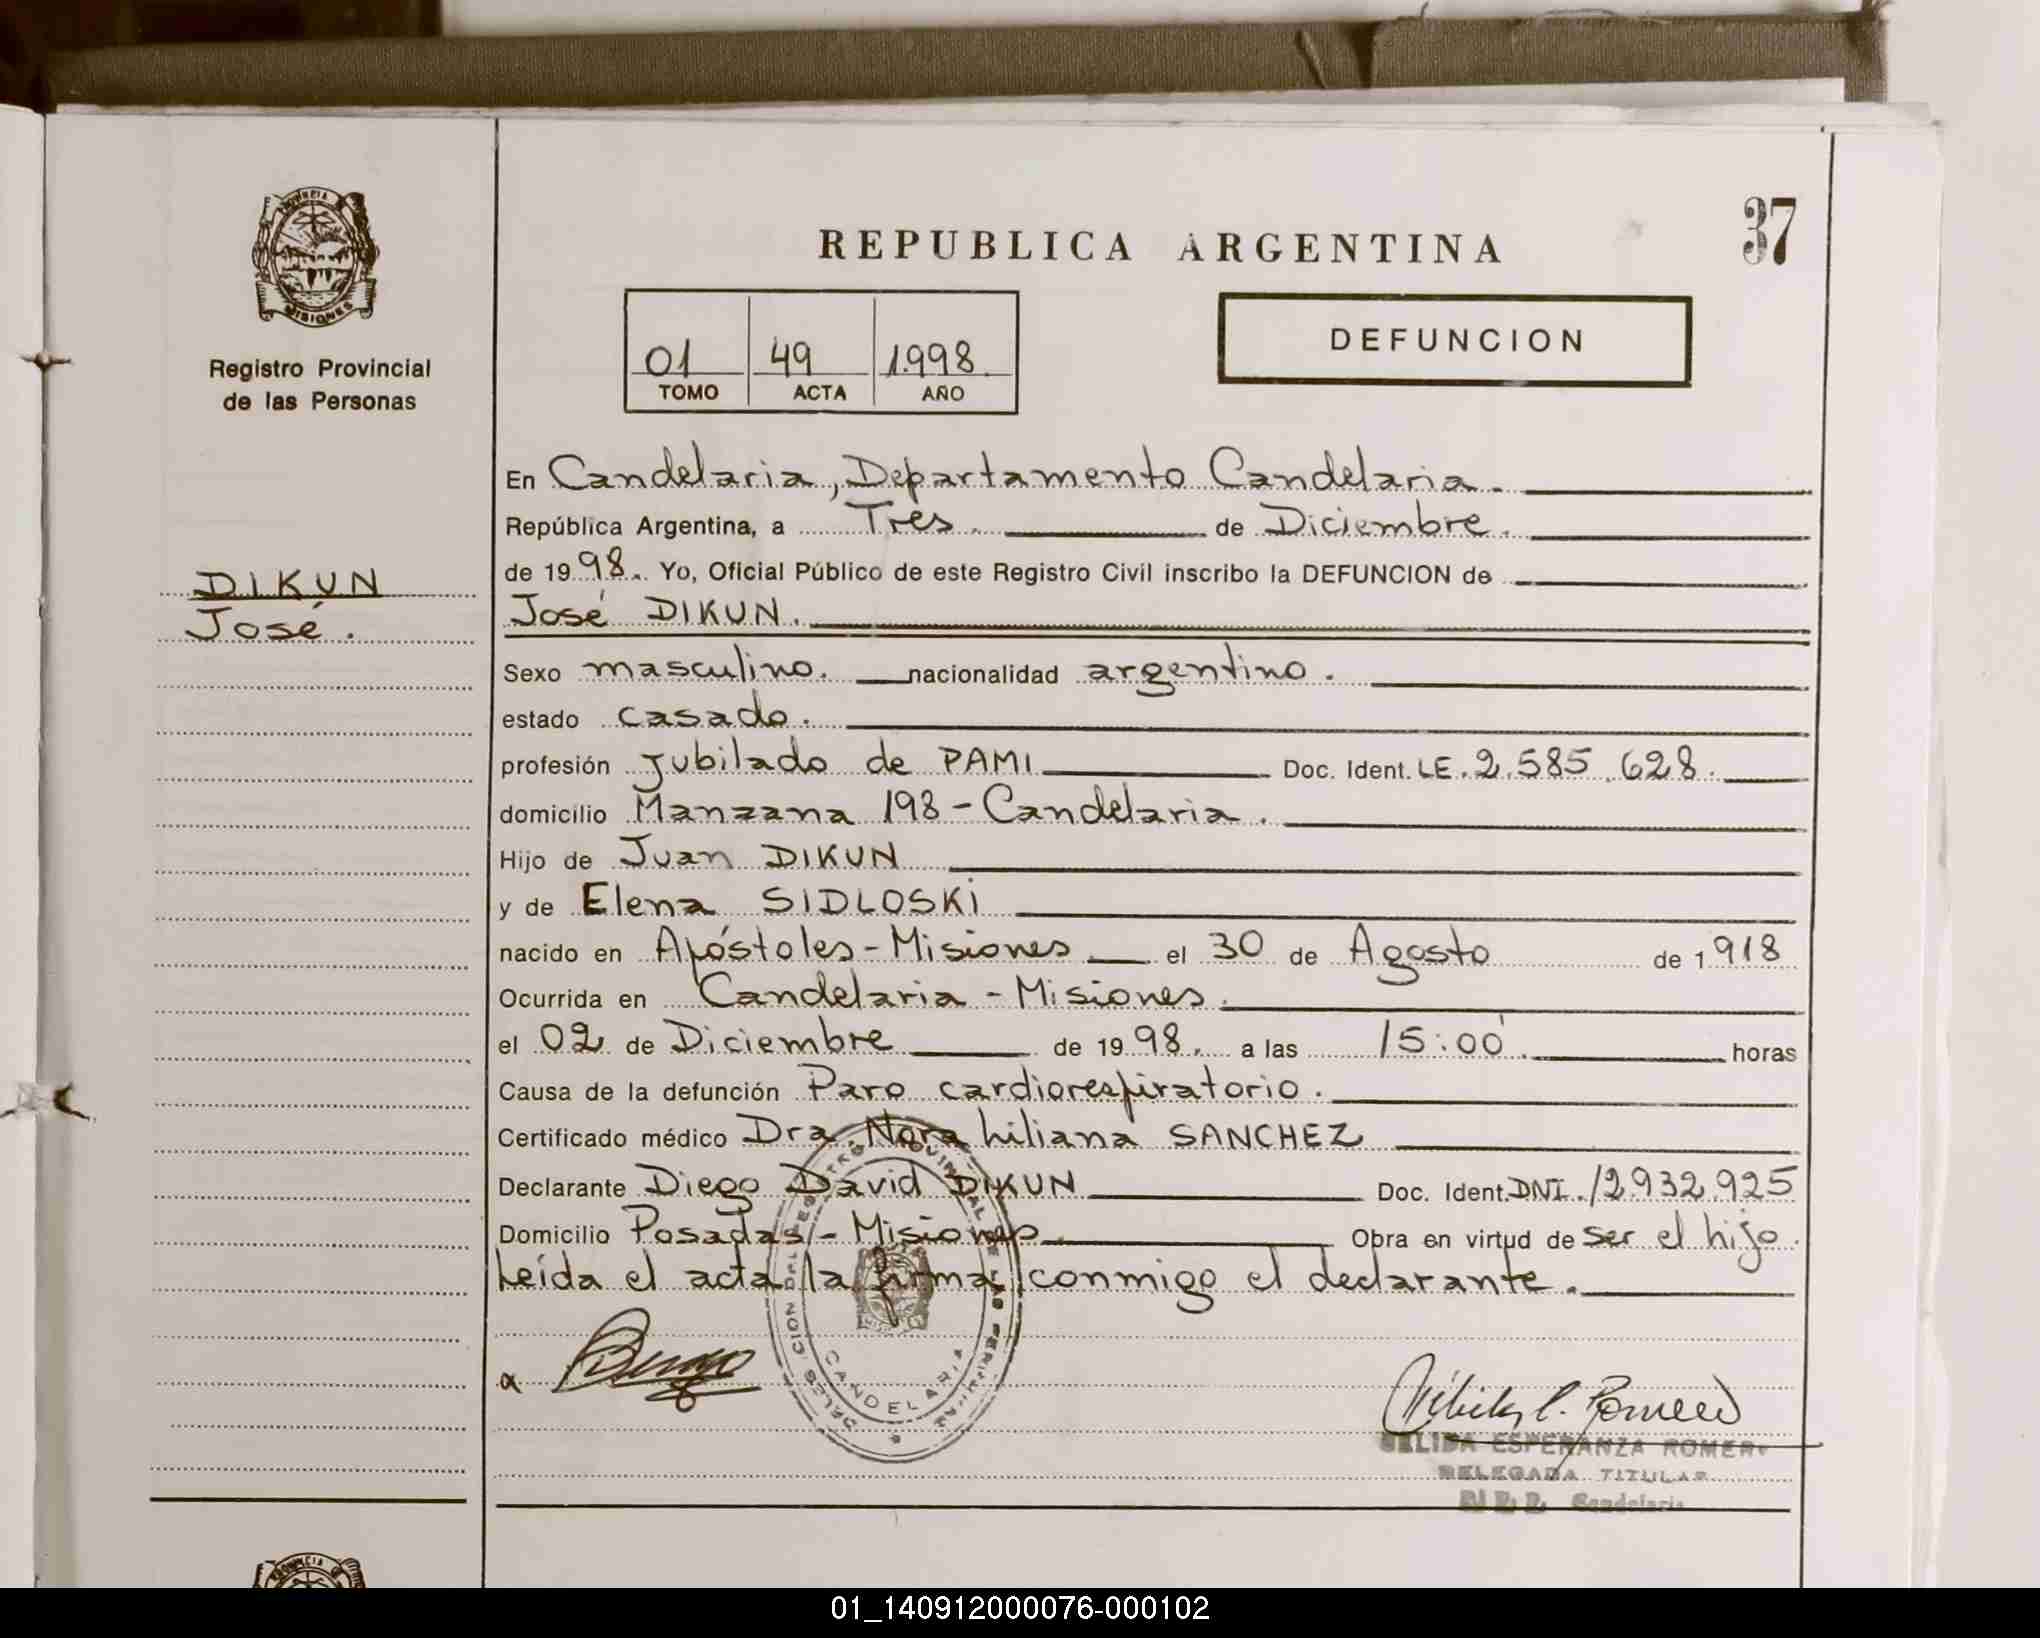 PROVINCIA DE
MISIONES
Registro Provincial
de las Personas
DIKUN
José.
37
REPUBLICA ARGENTINA
01 49 1.998
TOMO ACTA AÑO
DEFUNCION
En Candelaria, Departamento Candelaria.
República Argentina, a Tres. de Diciembre.
de 1998. Yo, Oficial Público de este Registro Civil inscribo la DEFUNCION de
José DIKUN.
Sexo masculino. nacionalidad argentino.
estado casado.
profesión jubilado de PAMI Doc. Ident. LE. 2.585.628.
domicilio Manzana 198 - Candelaria.
Hijo de Juan DIKUN
y de Elena SIDLOSKi
nacido en Apóstoles - Misiones el 30 de Agosto de 1918
Ocurrida en Candelaria - Misiones.
el 02 de Diciembre de 1998. a las 15:00 horas
Causa de la defunción Paro cardiorespiratorio.
Certificado médico Dra. Nora Liliana SANCHEZ
Declarante Diego David DIKUN Doc. Ident. DNI. 12.932.925
Domicilio Posadas - Misiones. Obra en virtud de ser el hijo.
Leída el acta la firma conmigo el declarante.
CANDELARIA
ESPERANZA ROMERO
DELEGADA TITULAR
Candelaria
01_140912000076-000102